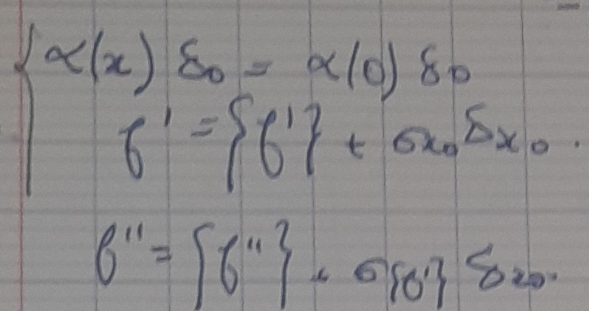 α(x) δ₀ = α(0) δ₀
f' = {f'} + σx₀ δx₀.
f'' = {f''} + σ{f'} δx₀.